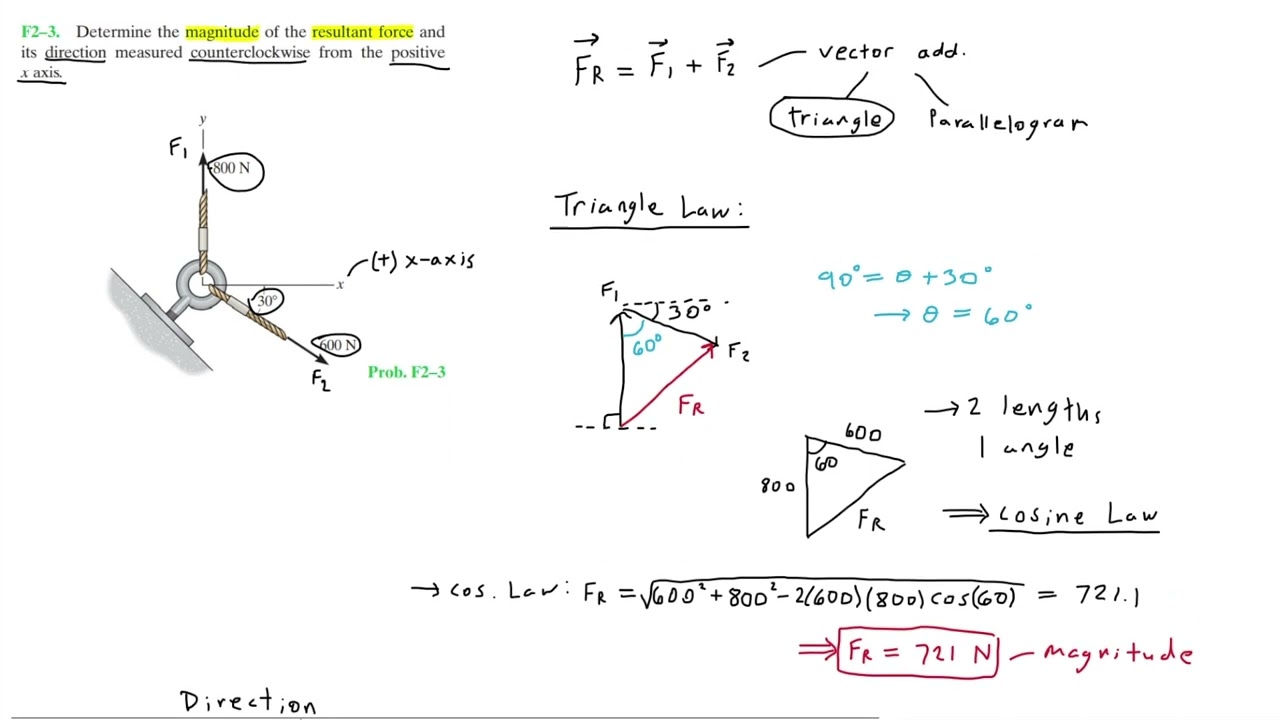 F2–3. Determine the magnitude of the resultant force and
its direction measured counterclockwise from the positive
x axis.
y
F₁
800 N
(+) x-axis
x
30°
600 N
F₂
Prob. F2–3
F⃗R = F⃗₁ + F⃗₂
vector add.
triangle
Parallelogram
Triangle Law:
F₁
30°
60°
F₂
FR
90° = θ + 30°
→ θ = 60°
600
60
800
FR
→ 2 lengths
1 angle
⇒ cosine Law
→ cos. Law: FR = √600² + 800² - 2(600)(800)cos(60) = 721.1
⇒ FR = 721 N - magnitude
Direction